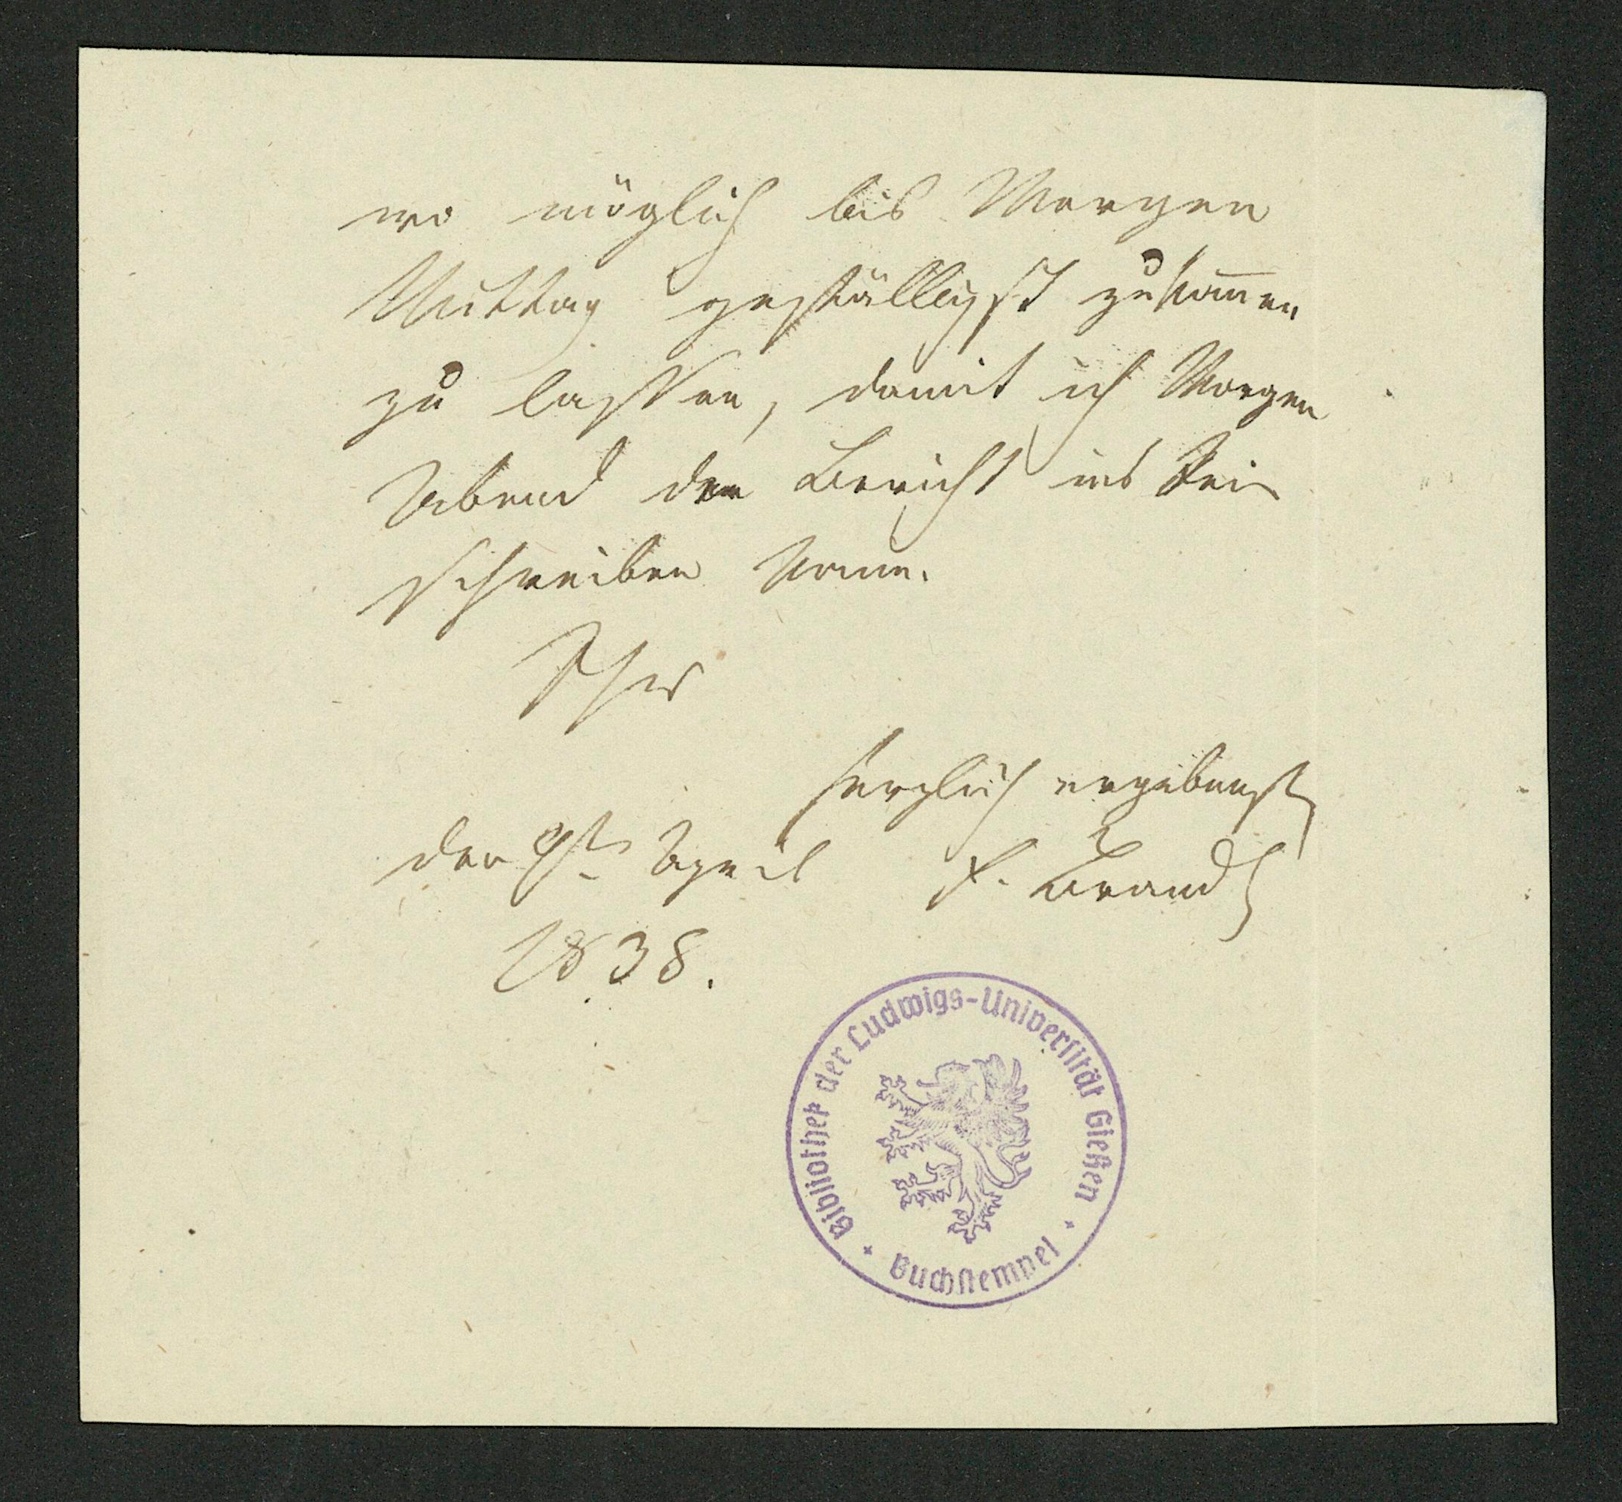 wo möglich bis Morgen
Mittag gefälligst zukom̅en
zu lassen, damit ich Morgen
Abend den Bericht ins Rein
schreiben kann.
Ihr
herzlich ergebenst
den 9ten April F. Brandt
1838.
Bibliothek der Ludwigs-Universität Gießen
Buchstempel